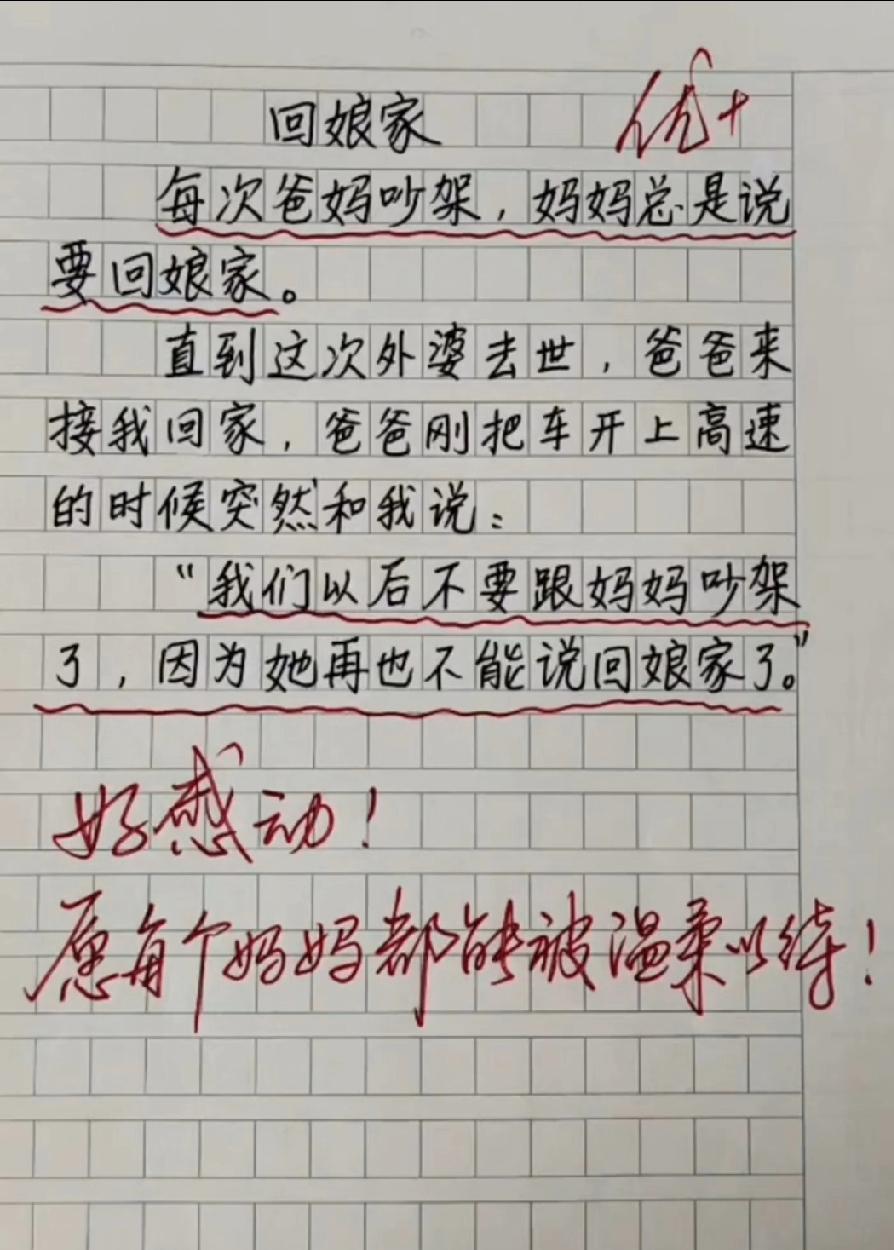 回娘家 优+
每次爸妈吵架，妈妈总是说
要回娘家。
直到这次外婆去世，爸爸来
接我回家，爸爸刚把车开上高速
的时候突然和我说：
“我们以后不要跟妈妈吵架
了，因为她再也不能说回娘家了。”
好感动！
愿每个妈妈都能被温柔以待！